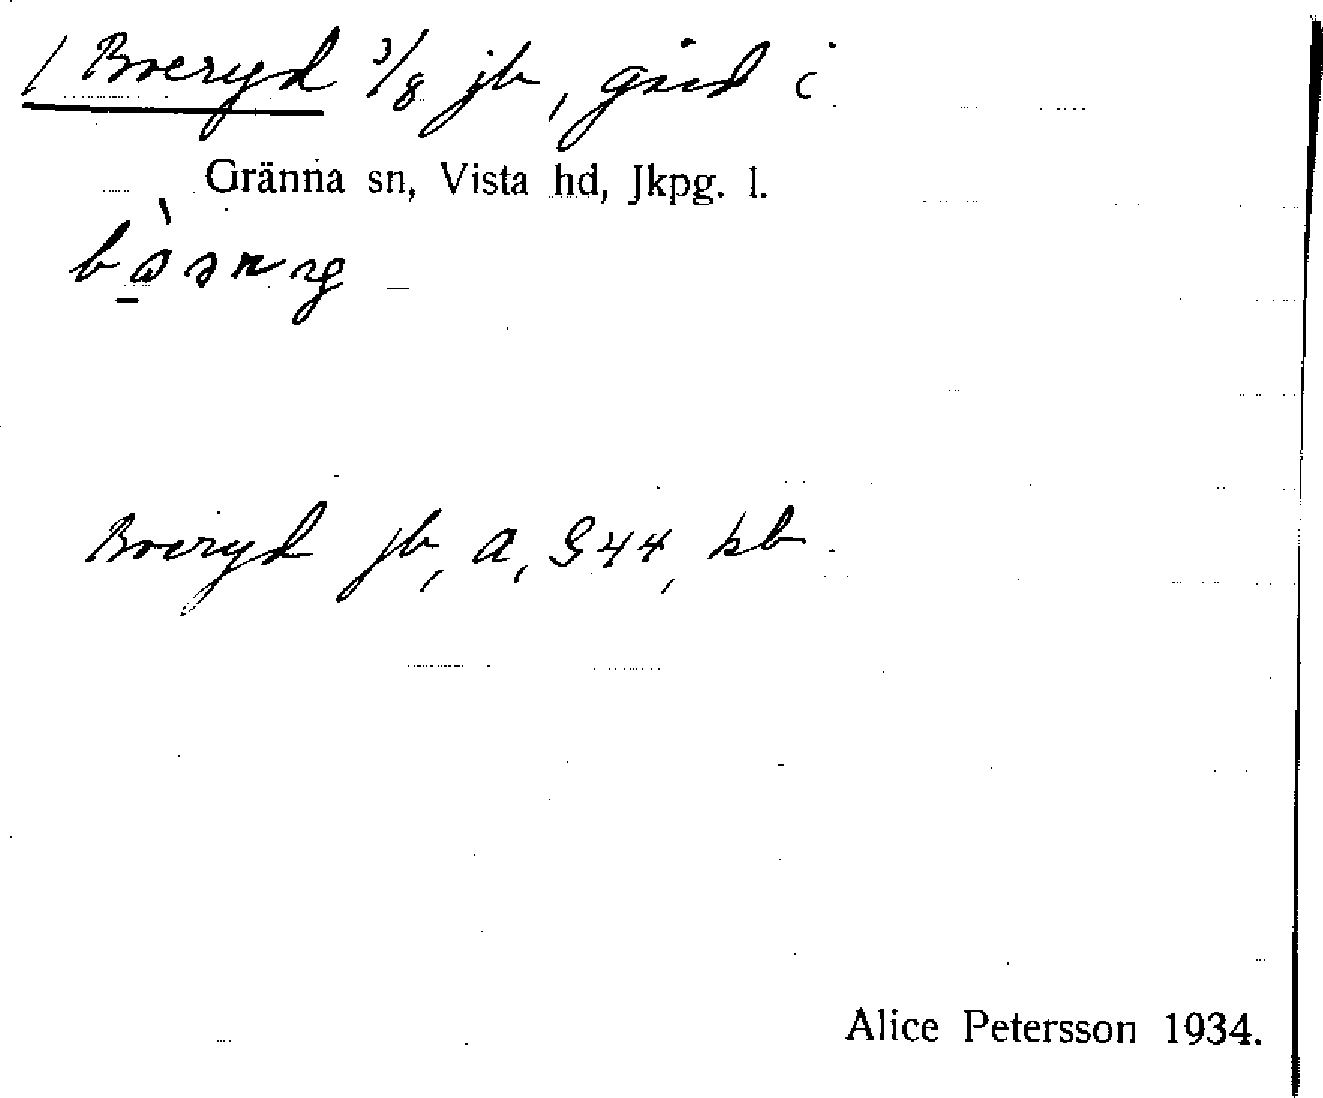 / Boeryd 3/8 jb, gård i
Gränna sn, Vista hd, Jkpg. l.
Boeryd jb, a, G44, kb.
Alice Petersson 1934.